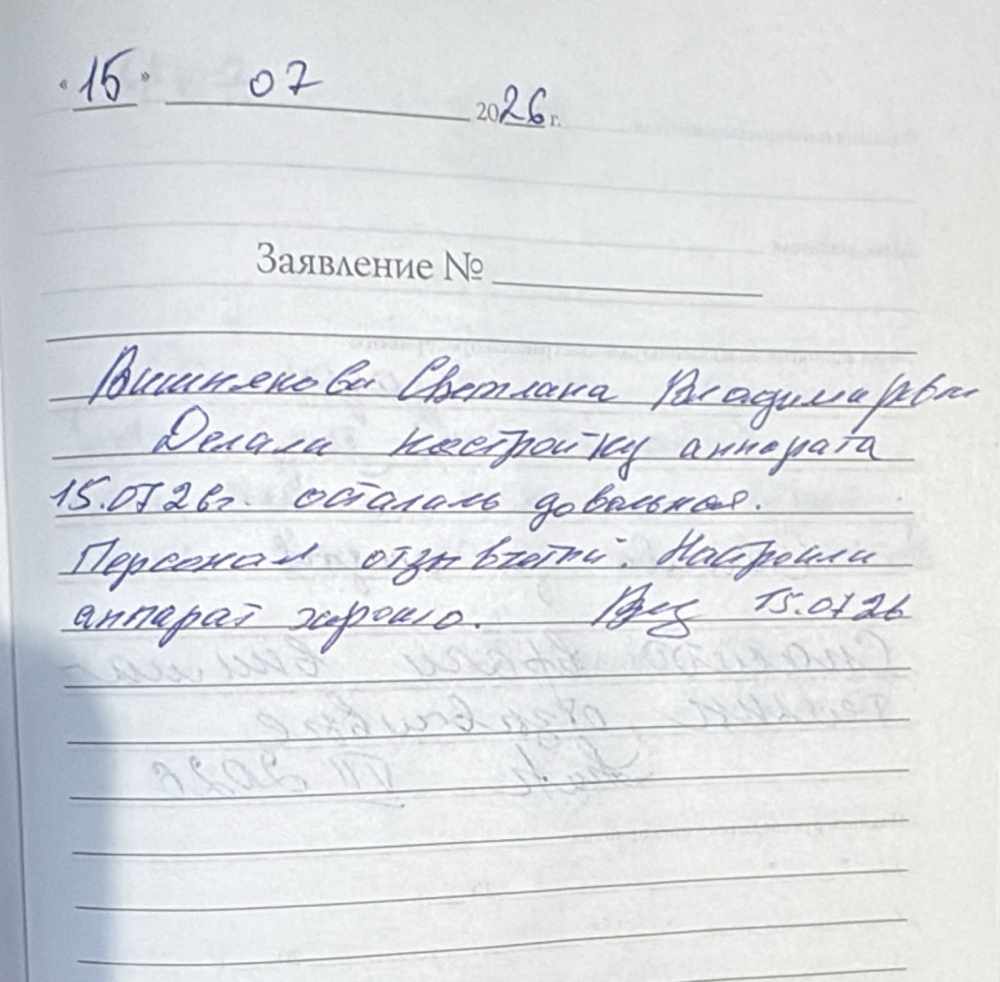 « 15 » 07 2026 г.
Заявление №
Вишнякова Светлана Владимировн
Делали настройку аппарата
15.07.26г. осталась довольная.
Персонал отзывчетый. Настроили
аппарат хорошо. 15.07.26